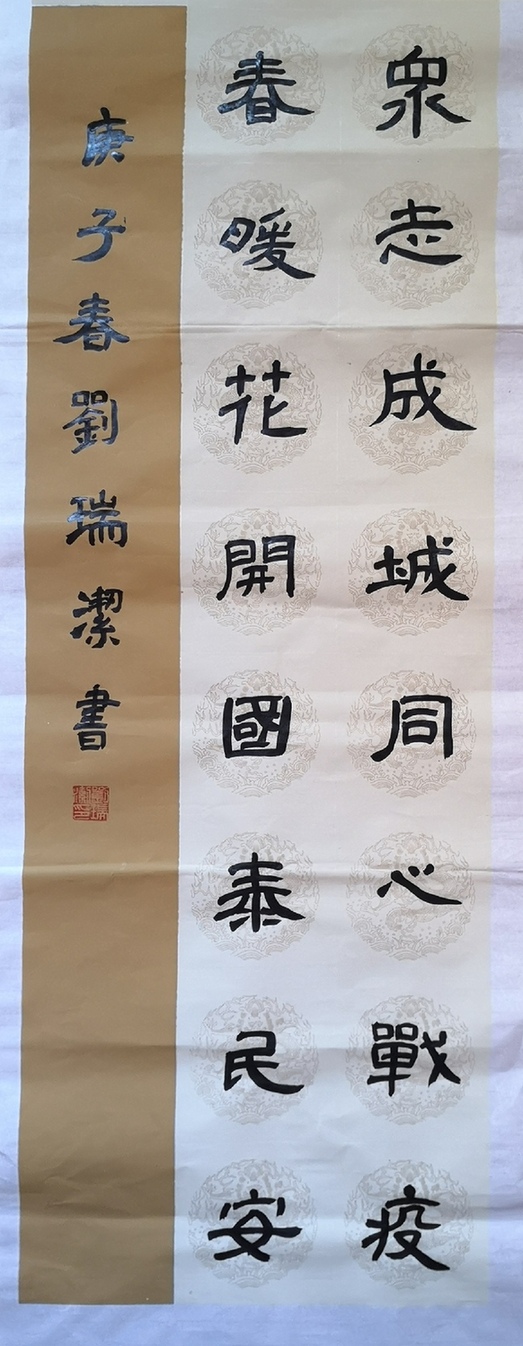 眾志成城同心戰疫
春暖花開國泰民安
庚子春劉瑞潔書